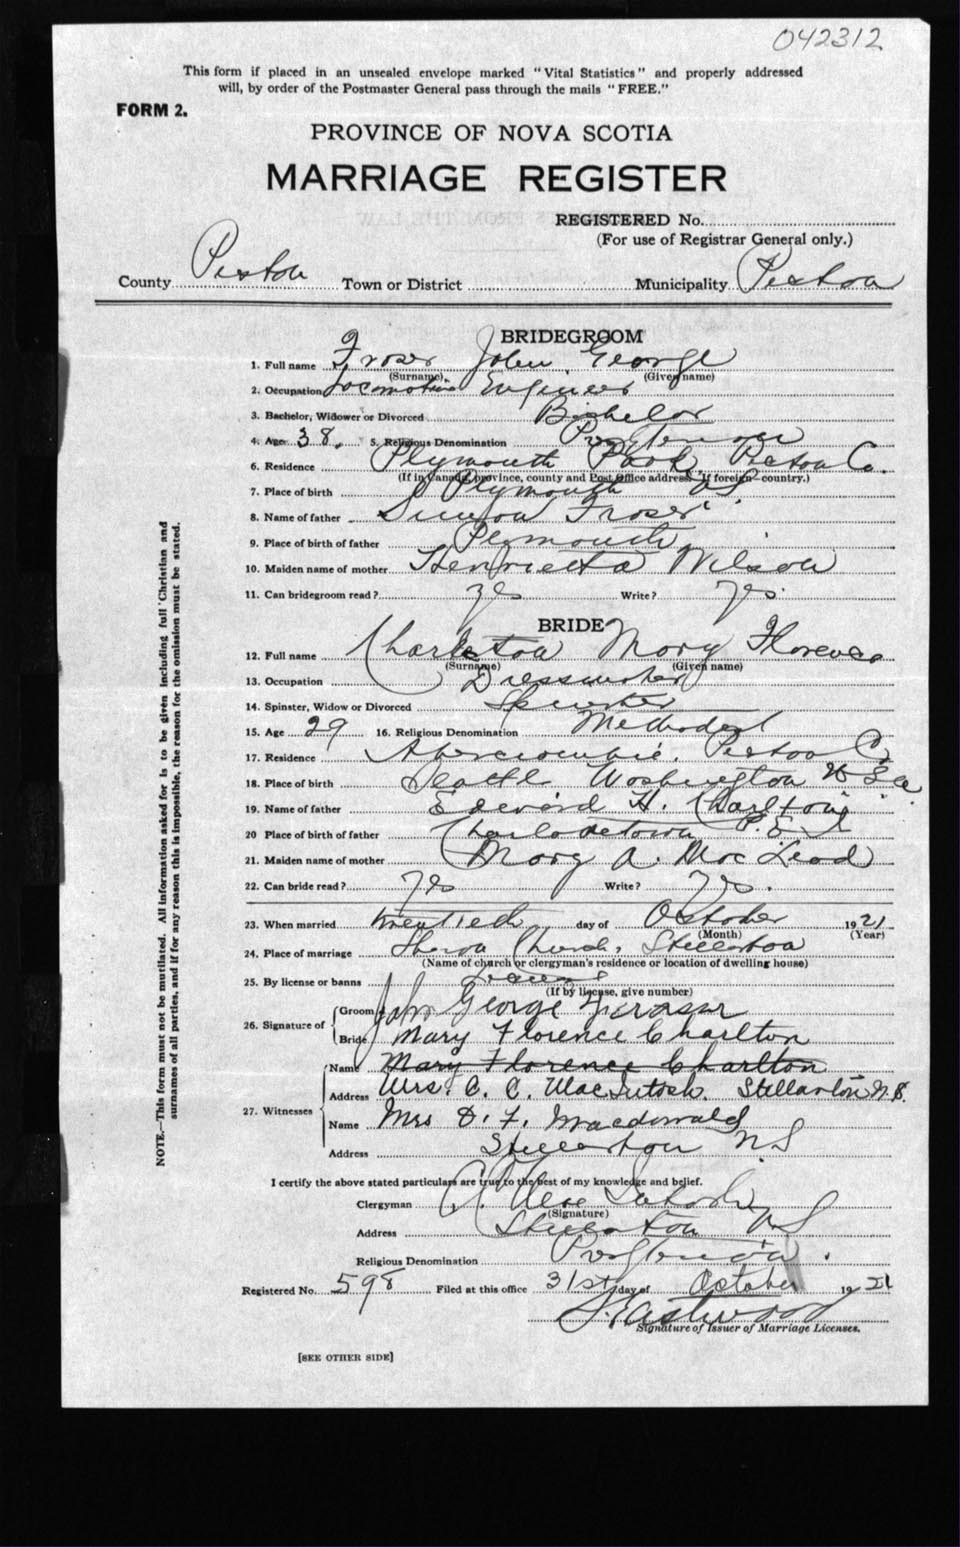 042312
This form if placed in an unsealed envelope marked "Vital Statistics" and properly addressed
will, by order of the Postmaster General pass through the mails "FREE."
FORM 2.
PROVINCE OF NOVA SCOTIA
MARRIAGE REGISTER
REGISTERED No.
(For use of Registrar General only.)
County Pictou Town or District Municipality Pictou
BRIDEGROOM
1. Full name Fraser John George
(Surname) (Given name)
2. Occupation Locomotive Engineer
3. Bachelor, Widower or Divorced Bachelor
4. Age 38. 5. Religious Denomination Presbyterian
6. Residence Plymouth Park, Pictou Co.
(If in Canada, province, county and Post Office address. If foreign—country.)
7. Place of birth Plymouth NS
8. Name of father Simon Fraser
9. Place of birth of father Plymouth
10. Maiden name of mother Henrietta Wilson
11. Can bridegroom read? yes Write? yes.
BRIDE
12. Full name Charleton Mary Florence
(Surname) (Given name)
13. Occupation Dressmaker
14. Spinster, Widow or Divorced Spinster
15. Age 29 16. Religious Denomination Methodist
17. Residence Abercrombie, Pictou Co
18. Place of birth Seattle Washington
19. Name of father Edward H. Charlton
20 Place of birth of father Charlottetown P.E.I
21. Maiden name of mother Mary A. MacLeod
22. Can bride read? yes Write? yes.
23. When married twentieth day of October 1921
(Month) (Year)
24. Place of marriage Sharon Church, Stellarton
(Name of church or clergyman's residence or location of dwelling house)
25. By license or banns License
(If by license, give number)
26. Signature of Groom John George Fraser
Bride Mary Florence Charlton
27. Witnesses Name Mary Florence Charlton
Address Mrs. C. C. MacIntosh. Stellarton N.S.
Name Mrs D. F. Macdonald
Address Stellarton NS
I certify the above stated particulars are true to the best of my knowledge and belief.
Clergyman MacIntosh
(Signature)
Address Stellarton NS
Religious Denomination Presbyterian.
Registered No. 598 Filed at this office 31st day of October 1921
S. Eastwood
Signature of Issuer of Marriage Licenses.
[SEE OTHER SIDE]
NOTE.—This form must not be mutilated. All information asked for is to be given including full Christian and
surnames of all parties, and if for any reason this is impossible, the reason for the omission must be stated.